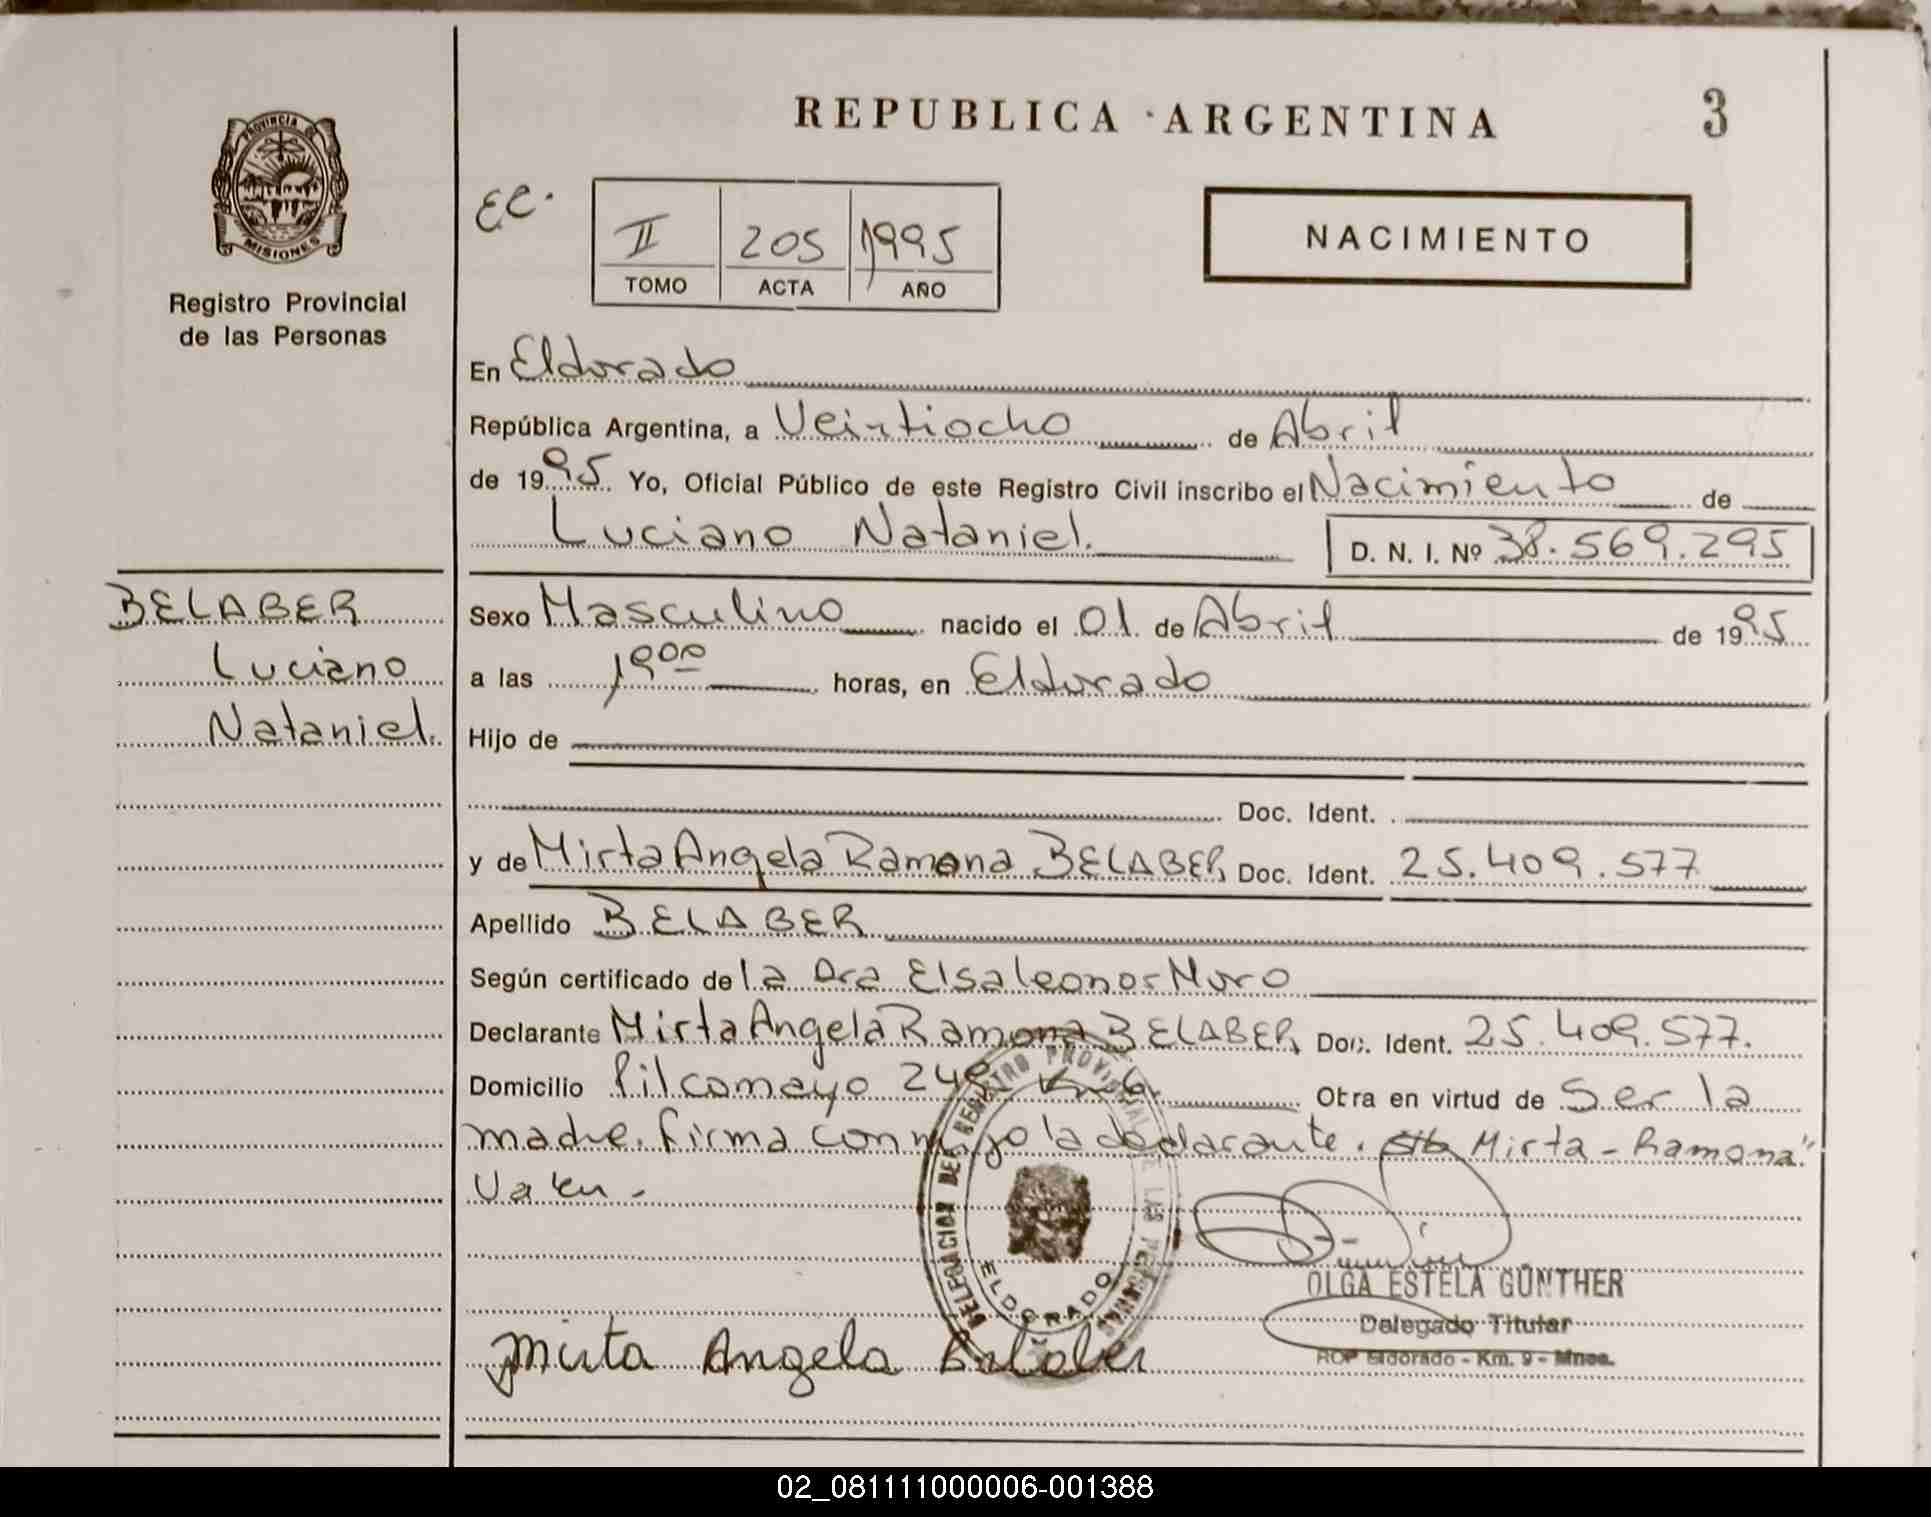 REPUBLICA ARGENTINA
3
PROVINCIA DE
MISIONES
Registro Provincial
de las Personas
EC.
II 205 1995
TOMO ACTA AÑO
NACIMIENTO
En Eldorado
República Argentina, a Veintiocho de Abril
de 1995 Yo, Oficial Público de este Registro Civil inscribo el Nacimiento de
Luciano Nataniel. D. N. I. Nº 38.569.295
BELABER
Luciano
Nataniel.
Sexo Masculino nacido el 01. de Abril de 1995
a las 19 00 horas, en Eldorado
Hijo de
Doc. Ident.
y de Mirta Angela Ramona BELABER Doc. Ident. 25.409.577
Apellido BELABER
Según certificado de la Dra Elsa Leonor Muro
Declarante Mirta Angela Ramona BELABER Doc. Ident. 25.409.577.
Domicilio Pilcomayo 248 Km 6. Otra en virtud de Ser la
madre. firma conmigo la declarante. Mirta - Ramona"
Valen -
DELEGACION DEL REGISTRO PROVINCIAL DE LAS PERSONAS
ELDORADO
OLGA ESTELA GÜNTHER
Delegado Titular
RCP Eldorado - Km. 9 - Mnes.
Mirta Angela Belaber
02_081111000006-001388